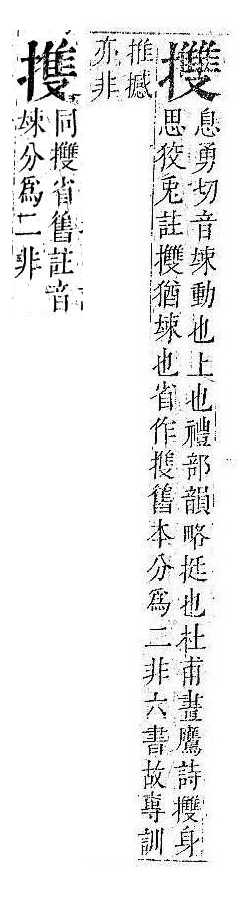 㩳
息勇切音竦動也上也禮部韻略挺也杜甫畫鷹詩㩳身
思狡兔註㩳猶竦也省作㨦舊本分爲二非六書故專訓
推撼
亦非
㨦
同㩳省舊註音
竦分爲二非